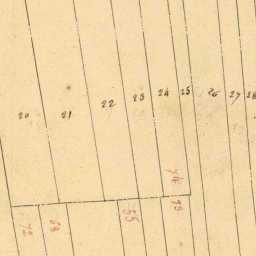 20 21 22 23 24 25 26 27 28
74
72 53 55 73